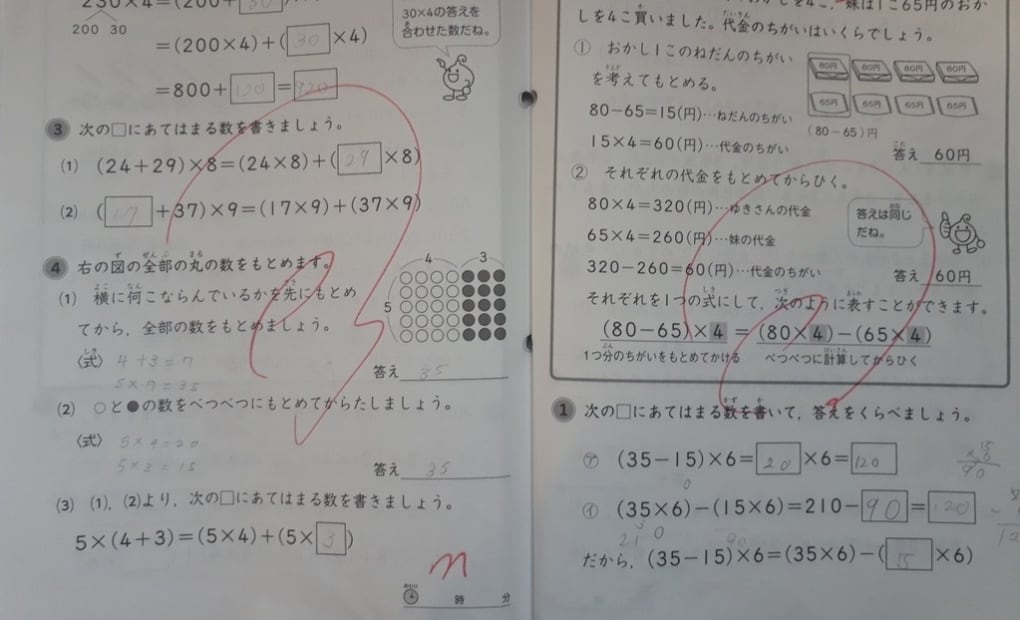 230×4=(200+30)
200 30
=(200×4)+(30×4)
=800+120=920
30×4の答えを
合わせた数だね。
3 次の□にあてはまる数を書きましょう。
(1) (24+29)×8=(24×8)+(29×8)
(2) (17+37)×9=(17×9)+(37×9)
4 右の図の全部の丸の数をもとめます。
(1) 横に何こならんでいるかを先にもとめ
てから,全部の数をもとめましょう。
〈式〉 4+3=7
5×7=35
答え 35
4 3
5
(2) ○と●の数をべつべつにもとめてからたしましょう。
〈式〉 5×4=20
5×3=15
答え 35
(3) (1),(2)より,次の□にあてはまる数を書きましょう。
5×(4+3)=(5×4)+(5×3)
時 分
妹は1こ65円のおか
しを4こ買いました。代金のちがいはいくらでしょう。
① おかし1このねだんのちがい
を考えてもとめる。
80-65=15(円)…ねだんのちがい
15×4=60(円)…代金のちがい
80円 80円 80円 80円
65円 65円 65円 65円
(80-65)円
答え 60円
② それぞれの代金をもとめてからひく。
80×4=320(円)…ゆきさんの代金
65×4=260(円)…妹の代金
320-260=60(円)…代金のちがい
答えは同じ
だね。
答え 60円
それぞれを1つの式にして,次のように表すことができます。
(80-65)×4=(80×4)-(65×4)
1つ分のちがいをもとめてかける べつべつに計算してからひく
1 次の□にあてはまる数を書いて,答えをくらべましょう。
㋐ (35-15)×6=20×6=120
㋑ (35×6)-(15×6)=210-90=120
だから,(35-15)×6=(35×6)-(15×6)